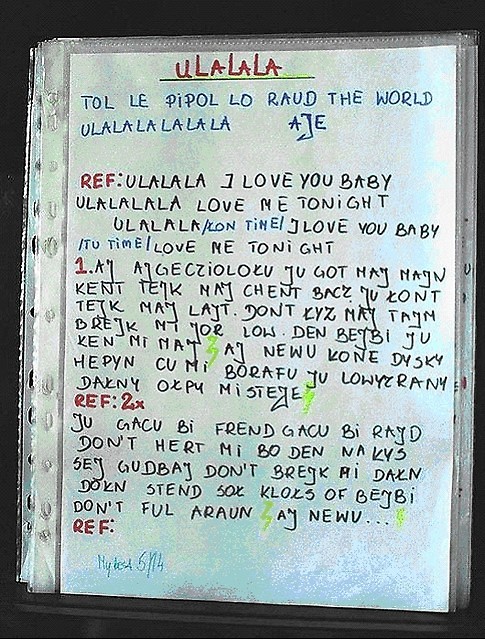 ULALALA
TOL LE PIPOL LO RAUD THE WORLD
ULALALALALALA AJE
REF: ULALALA I LOVE YOU BABY
ULALALALA LOVE ME TONIGHT
ULALALA /ŁON TIME/ I LOVE YOU BABY
/TU TIME/ LOVE ME TONIGHT
1. AJ AJGECZIOLOŁU JU GOT MAJ MAJN
KENT TEJK MAJ CHENT BACZ JU ŁONT
TEJK MAJ LAJT. DONT ŁYZ MAJ TAJM
BREJK MJ JOR LOW. DEN BEJBI JU
KEN MI MAJ AJ NEWU KONE DYSKY
HEPYN CU MI BORAFU JU LOWYZRANY
DAŁNY OŁPY MISTEJE
REF: 2x
JU GACU BI FREND GACU BI RAJD
DON'T HERT MI BO DEN NA KYS
SEJ GUDBAJ DON'T BREJK MI DAŁN
DOŁN STEND SOŁ KLOŁS OF BEJBI
DON'T FUL ARAUN AJ NEWU...
REF: